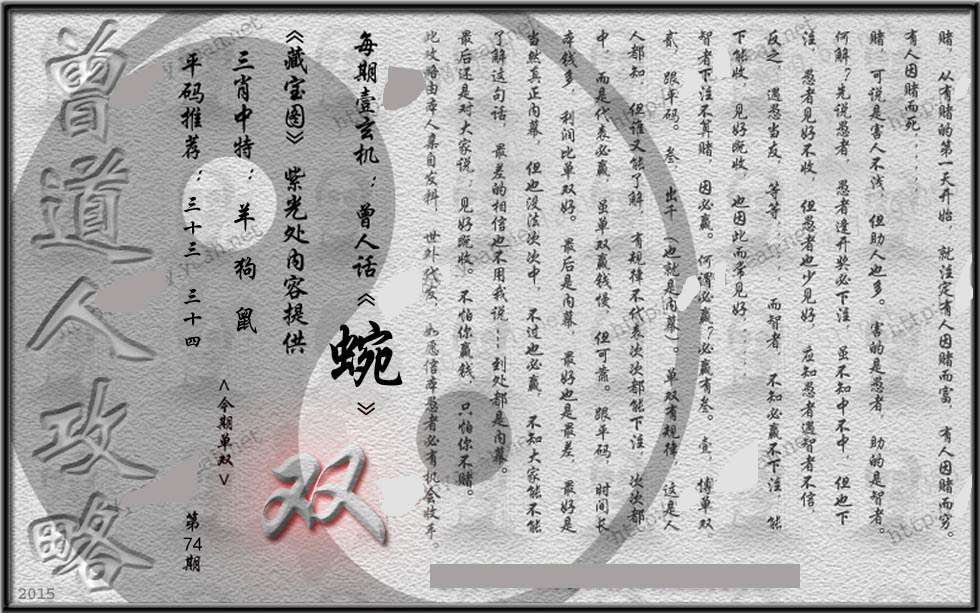 赌，从有赌的第一天开始，就注定有人因赌而富，有人因赌而穷。
有人因赌而死．．．．．．
赌，可说是害人不浅，但助人也多。害的是愚者，助的是智者。
何解？先说愚者，愚者逢开奖必下注，虽不知中不中，但也下
注，愚者见好不收，但愚者也少见好，应知愚者遇智者不信，
反之，遇愚当友，等等．．．．．．而智者，不知必赢不下注，能
下能收，见好既收，也因此而常见好．．．．．．
智者下注不算赌，因必赢。何谓必赢？必赢有叁。壹，博单双，
贰，跟平码。叁，出千（也就是内幕）。单双有规律，这是人
人都知，但谁又能了解，有规律不代表次次都能下注，次次都
中，而是代表必赢，虽单双赢钱慢，但可靠。跟平码，时间长
本钱多，利润比单双好。最后是内幕，最好也是最差，最好是
当然真正内幕，但也没法次次中，不过也必赢，不知大家能不能
了解这句话，最差的相信也不用我说…到处都是内幕。
最后还是对大家说：见好既收。不怕你赢钱，只怕你不赌。
此攻略由本人亲自发料，世外代发，如愿信本愚者必有机会收手。
每期壹玄机：曾人话《蜿》
《藏宝图》紫光处内容提供
双
三肖中特：羊 狗 鼠
<今期单双>
平码推荐：三十三 三十四
第74期
曾道人攻略
2015